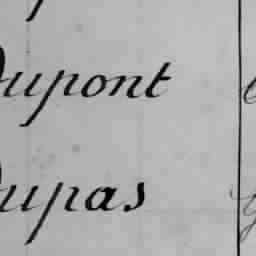 Dupont
Dupas